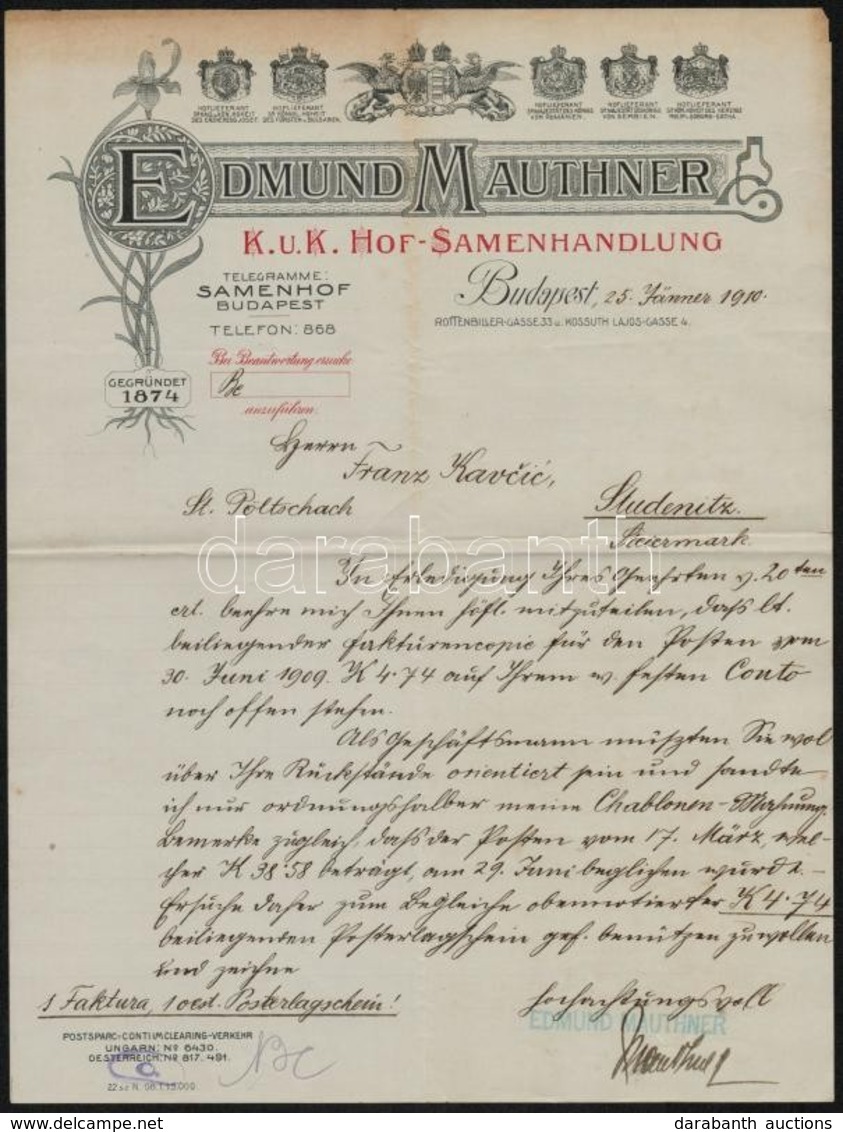 HOFLIEFERANT
DES ERZHERZOG JOSEF.
HOFLIEFERANT
SR KÖNIGL. HOHEIT
DES FÜRSTEN v. BULGARIEN.
HOFLIEFERANT
SR MAJESTÄT DES KÖNIGS
VON RUMÄNIEN.
HOFLIEFERANT
VON SERBIEN.
HOFLIEFERANT
EDMUND MAUTHNER
K.u.K. HOF-SAMENHANDLUNG
TELEGRAMME:
SAMENHOF
BUDAPEST
TELEFON: 868
Budapest, 25. Jänner 1910.
ROTTENBILLER-GASSE 33 u. KOSSUTH LAJOS-GASSE 4.
Bei Beantwortung ersuche
Be
anzuführen.
GEGRÜNDET
1874
Herrn
Franz Kavčić,
St. Pöltschach
Studenitz
Steiermark.
In Erledigung Ihres Geehrten v. 20ten
crt. beehre mich Ihnen höfl. mitzuteilen, dass lt.
beiliegender Fakturencopie für den Posten vom
30. Juni 1909. K 4.74 auf Ihrem w. festen Conto
noch offen stehen.
Als Geschäftsmann müszten Sie wol
über Ihre Rückstände orientiert sein und sandte
ich nur ordnungshalber meine Chablonen-Mahnung.
Bemerke zugleich, dass der Posten vom 17. März, wel-
cher K 38.58 beträgt, am 29. Juni beglichen wurde.-
Ersuche daher zum Begleiche obennotierter K 4.74
beiliegenden Posterlagschein gef. benützen zu wollen
und zeichne
1 Faktura, 1 oest. Posterlagschein!
hochachtungsvoll
EDMUND MAUTHNER
Mauthner
POSTSPARC-CONTI IM CLEARING-VERKEHR
UNGARN: No 6430.
OESTERREICH: No 817.491.
darabanth
darabanth auctions